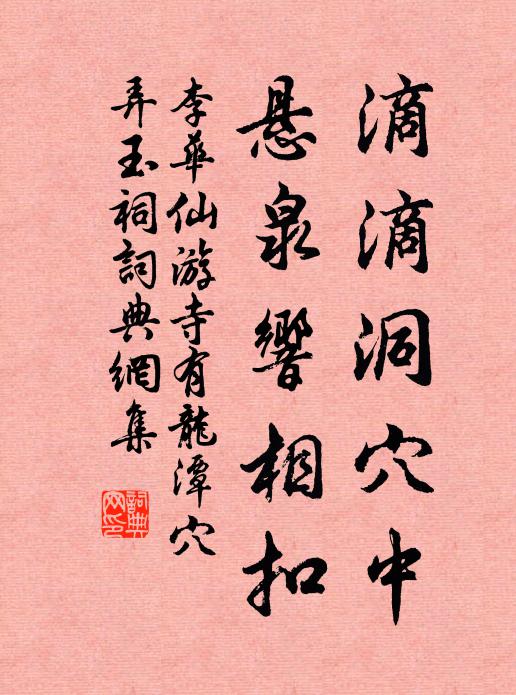 滴滴洞穴中
悬泉響相扣
李華仙游寺有龍潭穴
弄玉祠詞典網集
詞典
网印